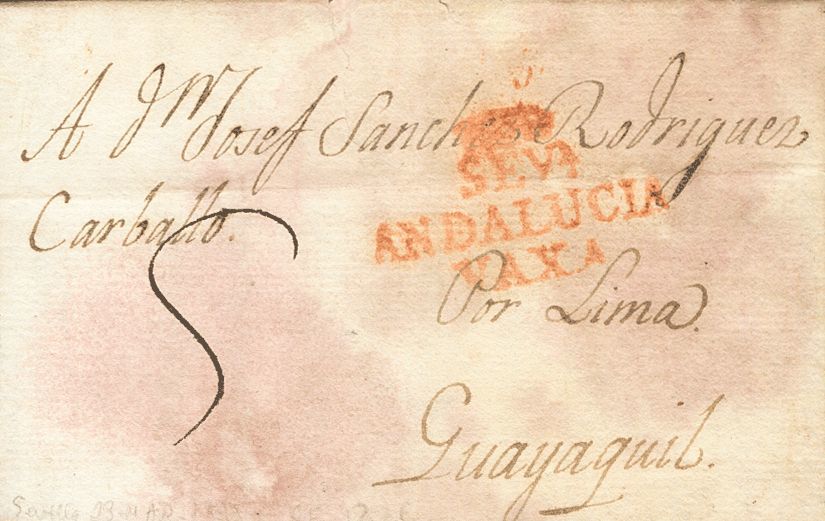 A Dn. Josef Sanchez Rodriguez
Carballo.
SEVA
ANDALUCIA
VAXA
5
Por Lima.
Guayaquil.
Sevilla